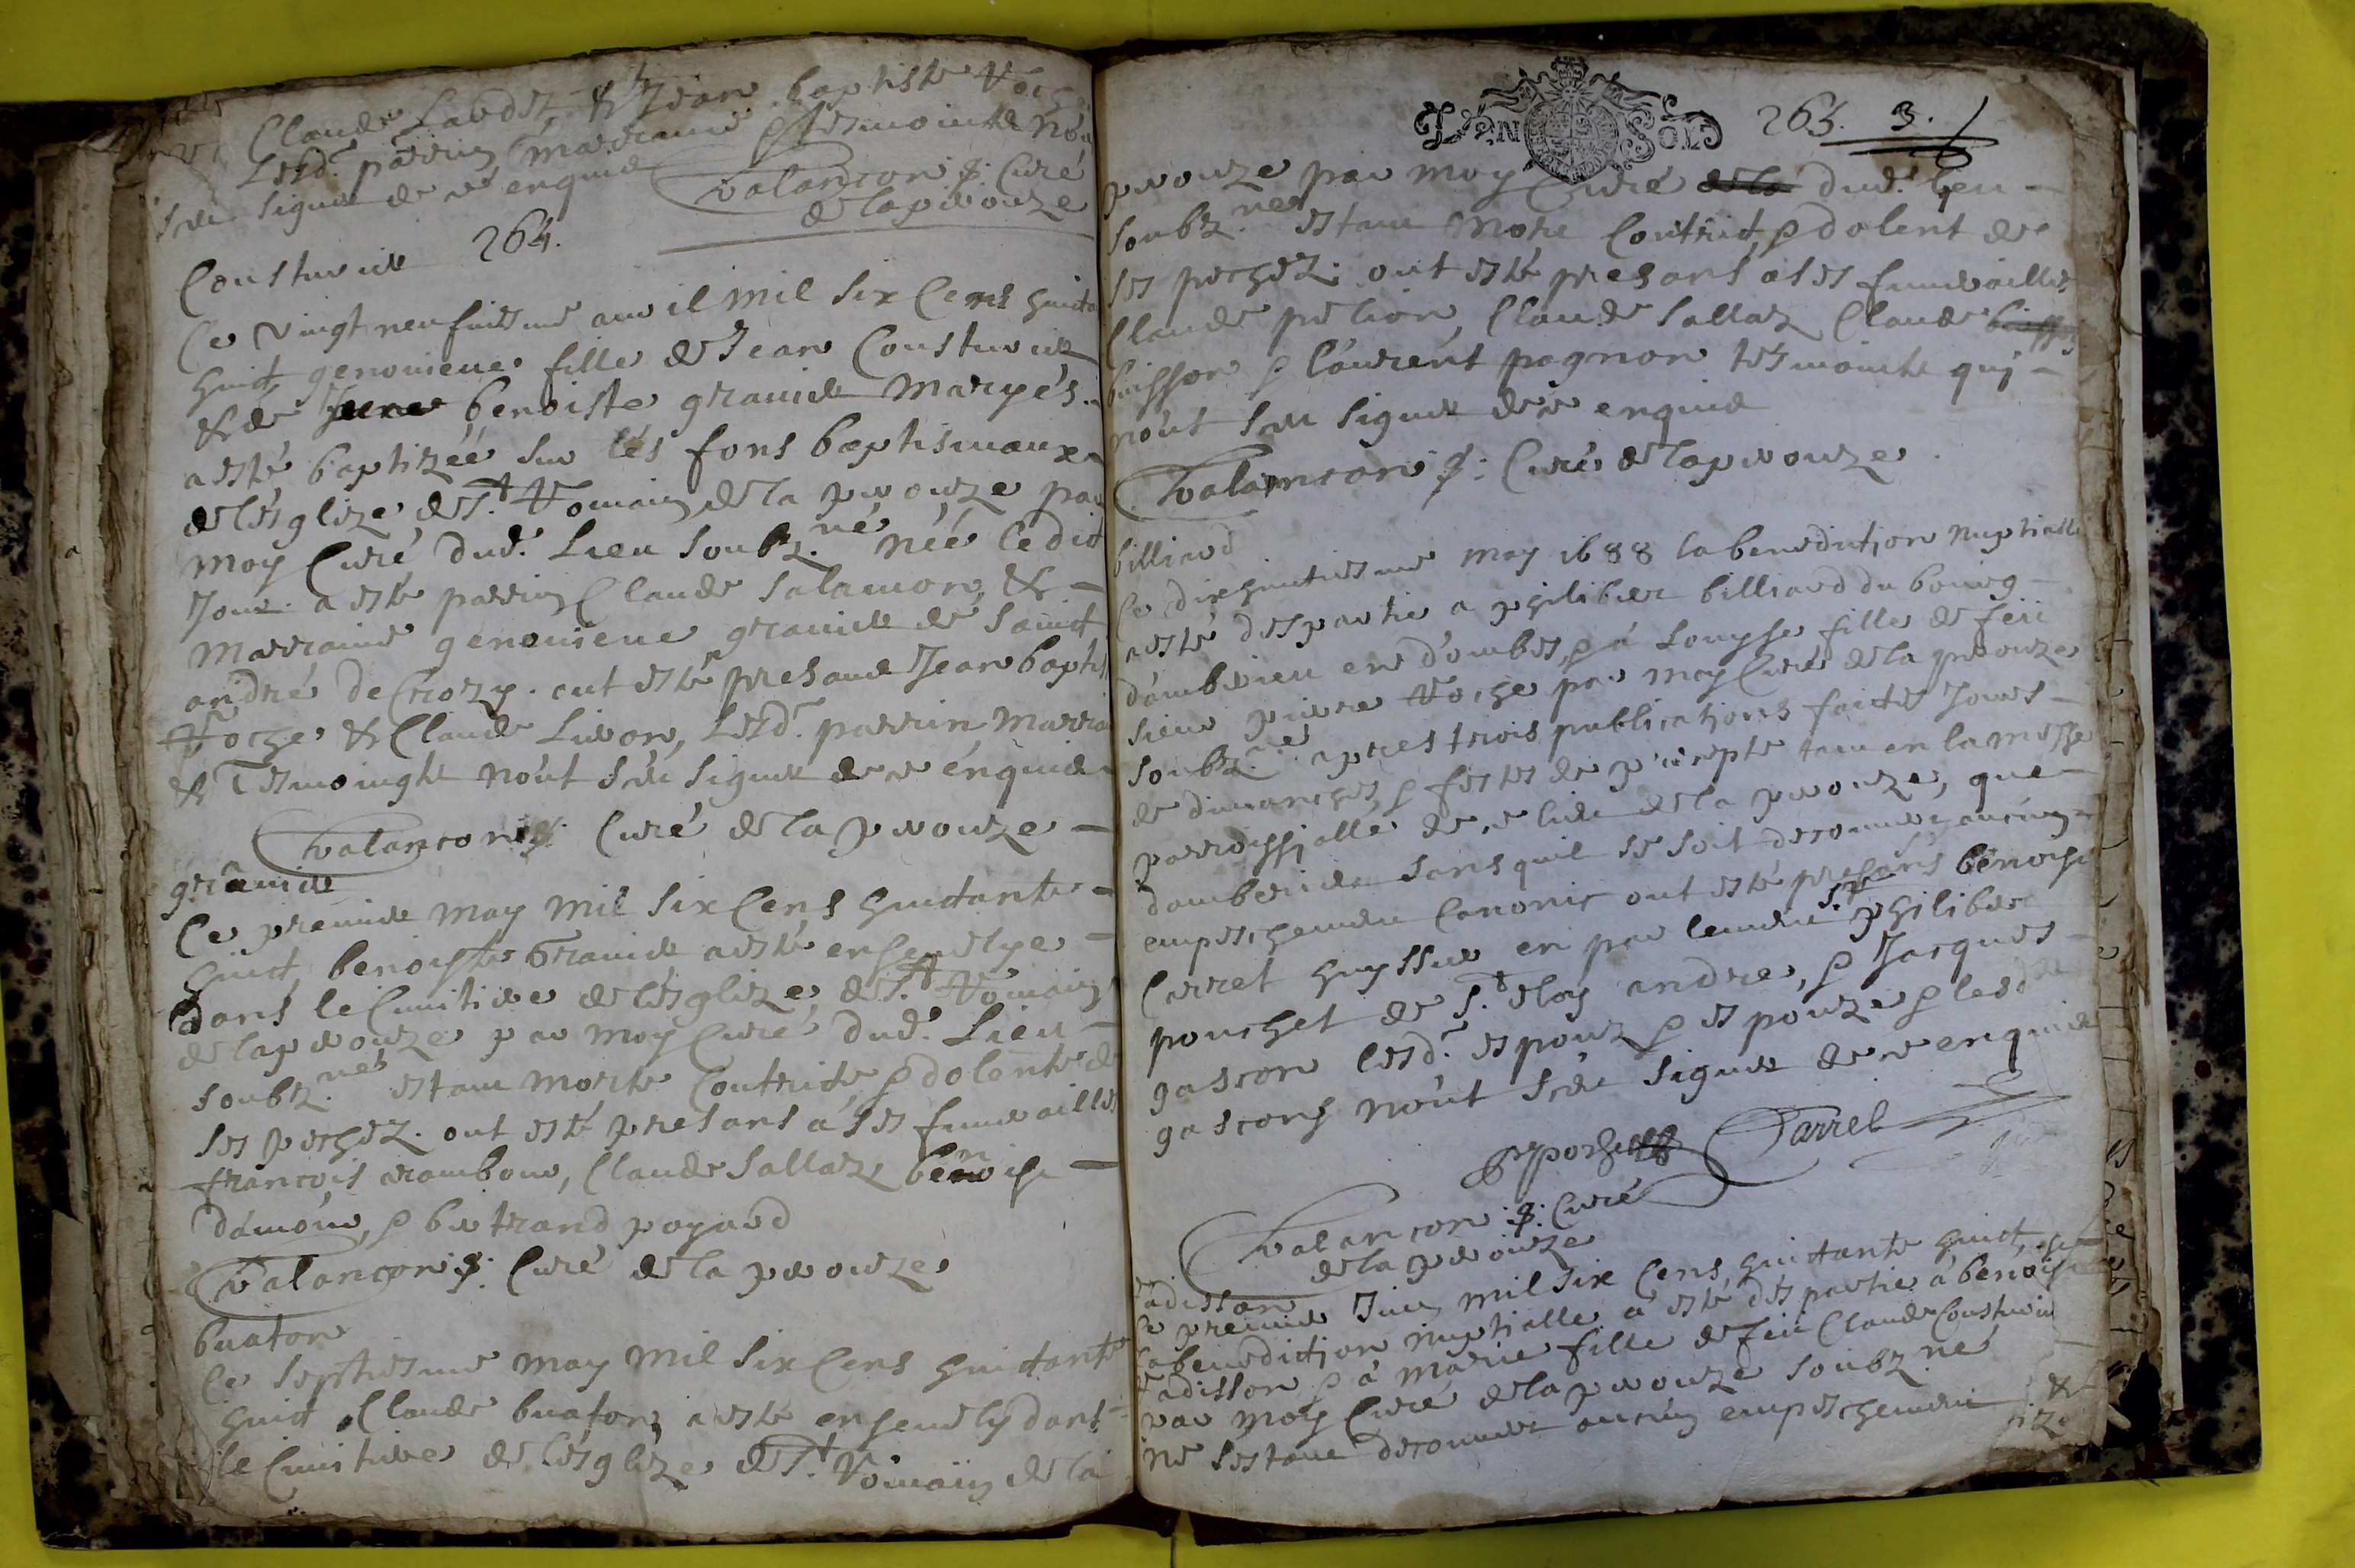 Claude Laudet, & Jean baptiste Roche
Lesd. parrin marraine & tesmointz nont
sceu signer de ce enquis Valançon p: Curé
de la peirouze
Cousturier 264.
Ce vingt neufuiesme auril mil six Cens huicta
huict genouieue fille de Jean Cousturier
& de benoiste granier maryés
a esté baptizéé sur lés fons baptismaux
de lésglize de St. Romain de la peirouze par
moy Curé dud. Lieu soubz.né néé Ledit
Jour. a esté parrin Claude salamon, &
marraine genouieue granier de Sainct
andré De Crozy. ont esté presans Jean bapti
Roche & Claude Liuon, Lesd. parrin marrai
& Tesmoingtz nónt sceu signer de ce énquis
Valançon p: Curé de la peirouze
granier
Ce premier may mil six Cens huictante
huict, benoyste Granier a esté enseuelye
dans le Cimitiere de lésglize de St. Romain
de la peirouze par moy Curé dud. Lieu
soubz.né estant morte Contrite, & dolente de
ses pechez. ont esté presans á ses funerailles
françois rambour, Claude sallaz, benoist
dámour, & bertrand payard
Valançon p: Curé de la peirouze
buaton
Ce septiesme may mil six Cens huictante
huict, Claude buaton, a esté enseuely dans
le Cimitiere de lésglize de St. Romain de la
LYON SOLS 263. 3.
peirouze par moy Curé dud. lieu
soubz.né estant mort Contrict, & dolent de
ses pechez. ont esté presans a ses funerailles
Claude petion, Claude sallaz Claude
buisson & láurént pagnon tesmointz quj
nónt sceu signer de ce enquis
Valançon p: Curé de la peirouze
billiard
Ce dixhuictiesme may 1688 la benediction nuptialle
a esté despartie a philibert billiard du bourg
dámberieu en dómbes, & á Louyse fille de féu
sieur pierre Roche par moy Curé de la peirouze
soubz.né apres trois publications faictes Jours
de dimanches, & festes de precepte tant en la messe
parroissjalle de ce lieu de la peirouze, que
damberieu sans quil se soit decouuert aucung
empeschement Canonic ont esté presans benoist
Carret huyssier en parlement, sr. philibert
pouchet de St. eloy andre, & Jacques
gascon lesd. espoux & espouze & lesd.
gascons nónt sceu signer de ce enquis
Carret
Valançon p: Curé
de la peirouze
radisson
Ce premier Juin mil six Cens huictante huict,
la benediction nuptialle a esté despartie á benoist
radisson & á marie fille de féu Claude Cousturier
par moy Curé de la peirouze soubz.né
ne sestant decouuert aucung empeschement &